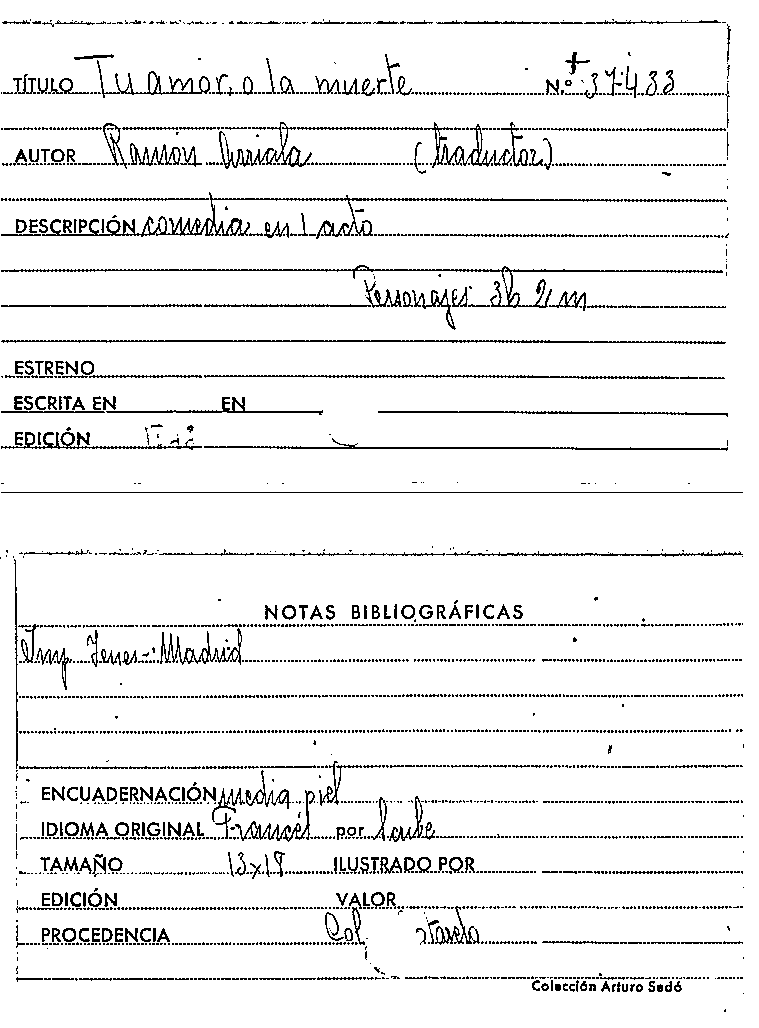 TÍTULO Tu amor, o la muerte N.º 37433
AUTOR Ramón Arriala (traductor)
DESCRIPCIÓN comedia en 1 acto
Personajes 3h 2 m
ESTRENO
ESCRITA EN EN
EDICIÓN
NOTAS BIBLIOGRÁFICAS
Imp Yenes-Madrid
ENCUADERNACIÓN media piel
IDIOMA ORIGINAL Francés por Scribe
TAMAÑO 13x19 ILUSTRADO POR
EDICIÓN VALOR
PROCEDENCIA Col.
Colección Arturo Sedó